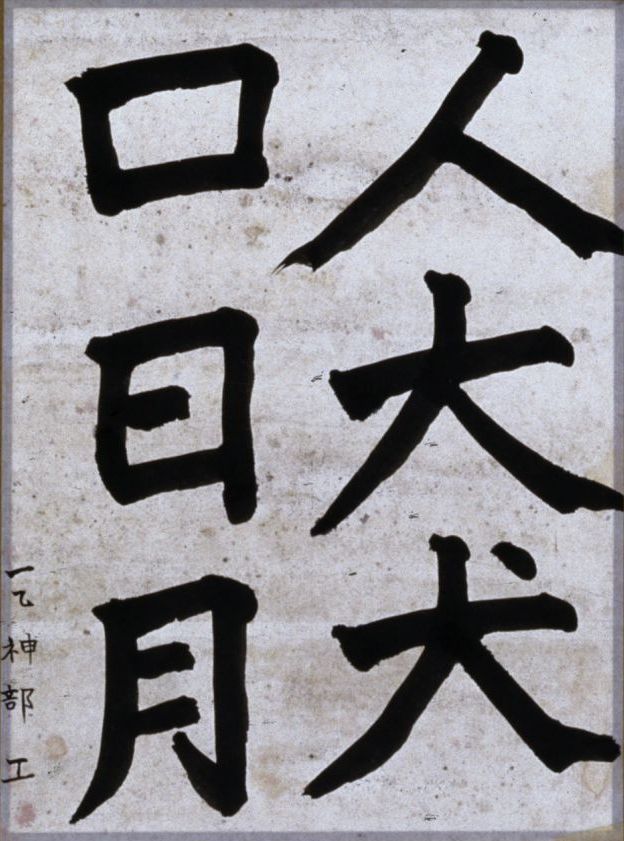 人大犬
口日月
一乙 神部 工